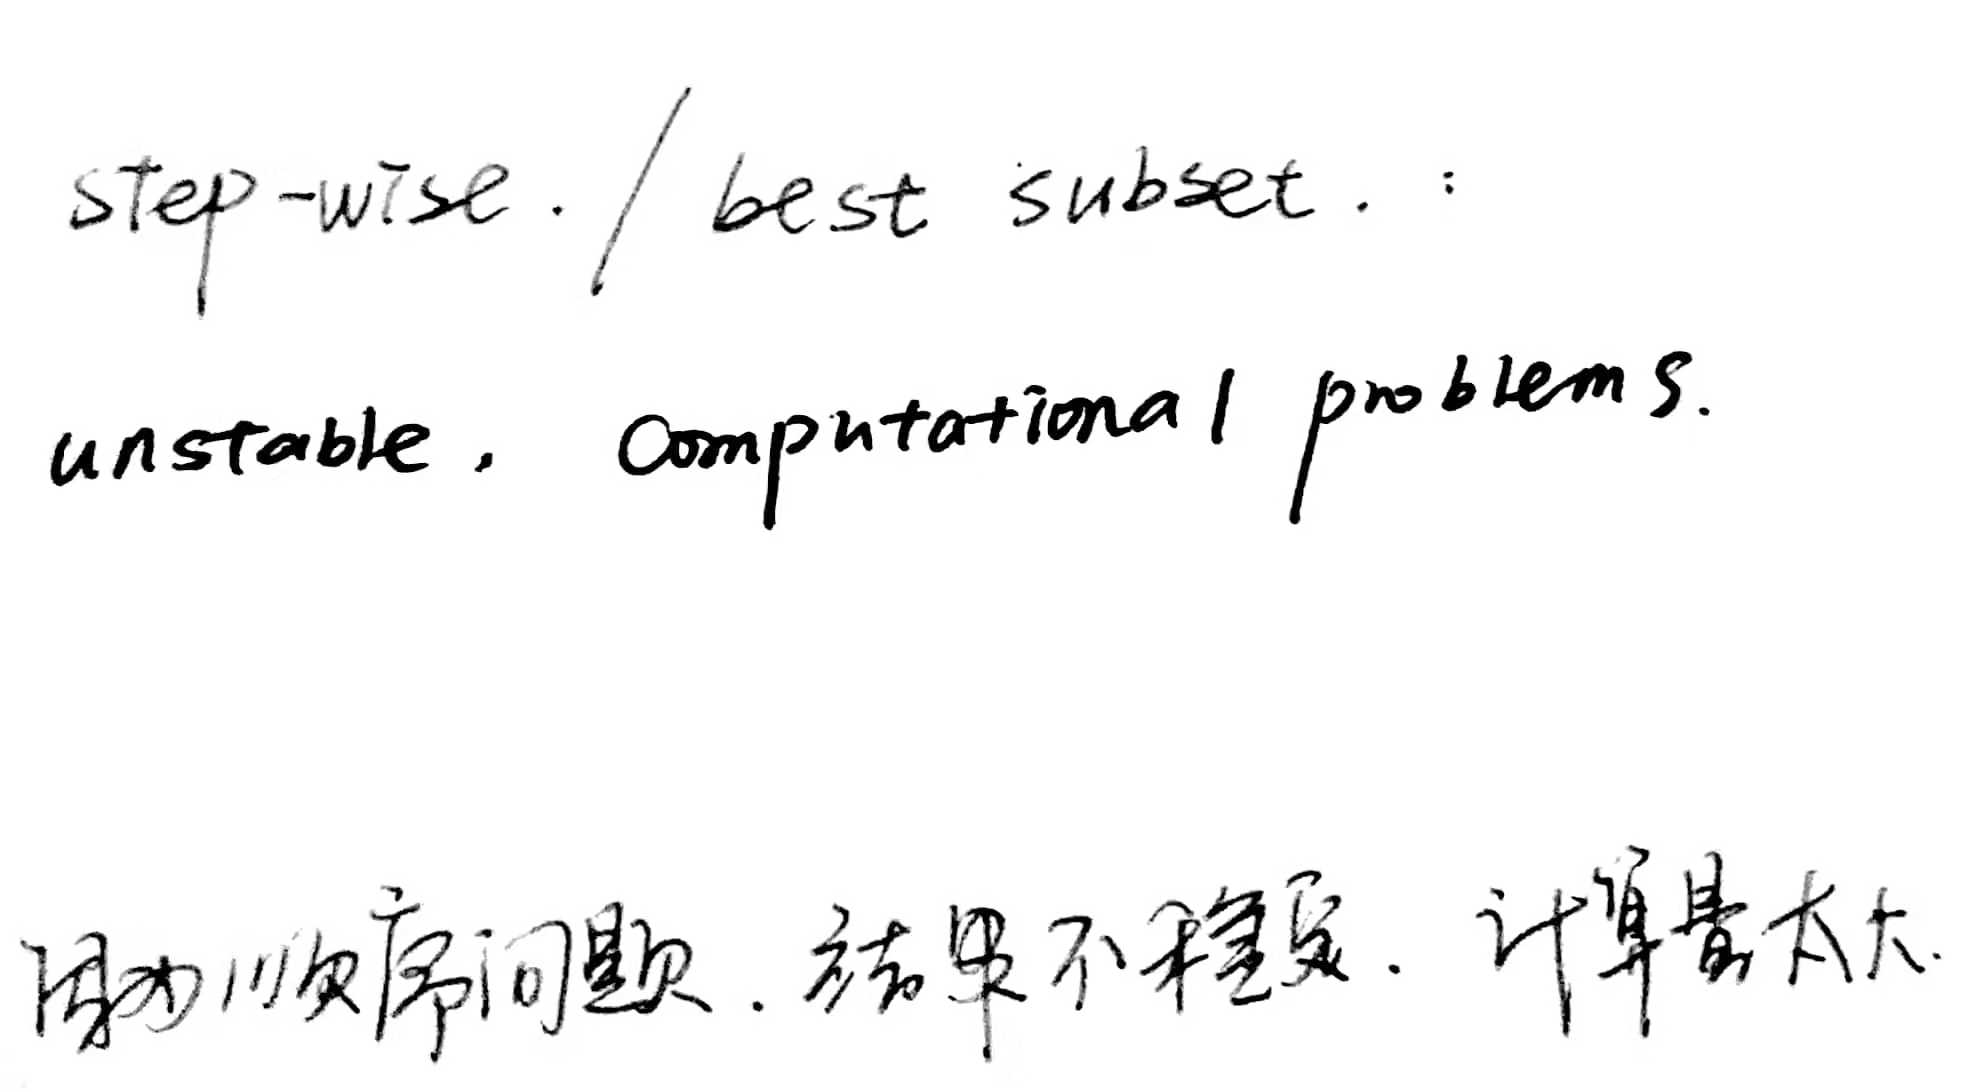 step-wise. / best subset. :
unstable. Computational problems.
因为顺序问题. 结果不稳定. 计算量太大.